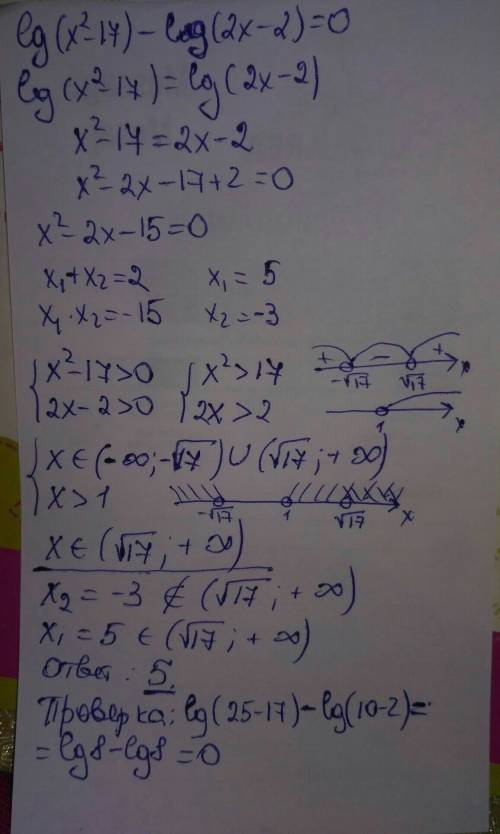 lg(x²-17)-log(2x-2)=0
lg(x²-17)=lg(2x-2)
x²-17=2x-2
x²-2x-17+2=0
x²-2x-15=0
x₁+x₂=2 x₁=5
x₁·x₂=-15 x₂=-3
{x²-17>0 {x²>17 + - + -√17 √17 x
2x-2>0 2x>2 1 x
{x∈(-∞;-√17)∪(√17;+∞)
x>1 -√17 1 √17 x
x∈(√17;+∞)
x₂=-3∉(√17;+∞)
x₁=5∈(√17;+∞)
Ответ: 5.
Проверка: lg(25-17)-lg(10-2)=
=lg8-lg8=0